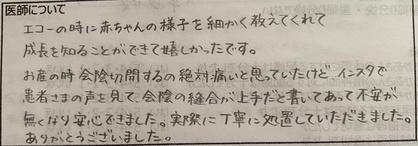 医師について
エコーの時に赤ちゃんの様子を細かく教えてくれて
成長を知ることができて嬉しかったです。
お産の時会陰切開するの絶対痛いと思っていたけど、インスタで
患者さまの声を見て、会陰の縫合が上手だと書いてあって不安が
無くなり安心できました。実際に丁寧に処置していただきました。
ありがとうございました。